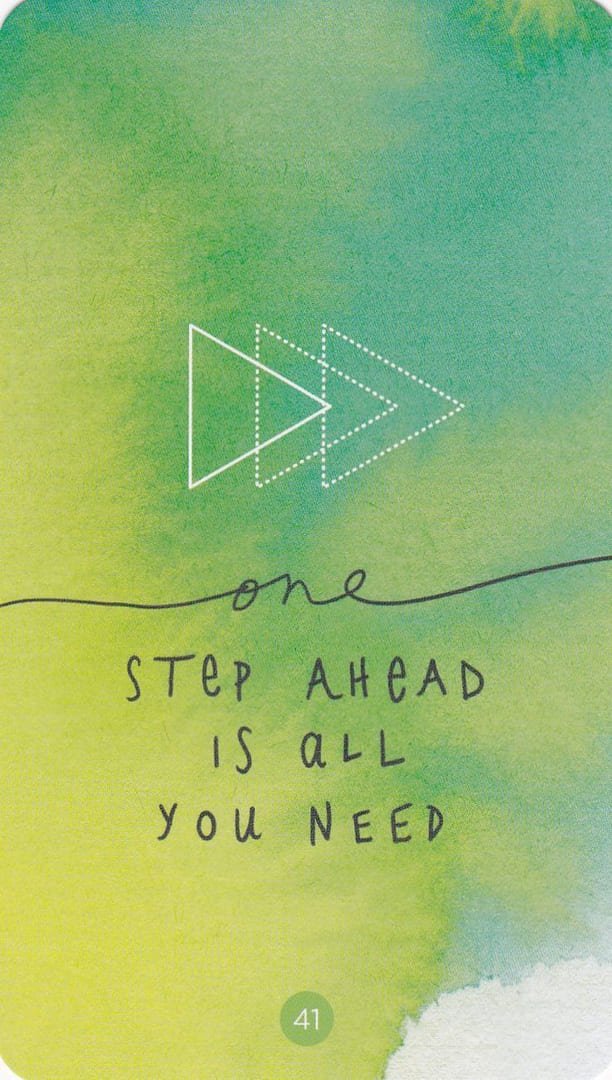 one
STEP AHEAD
IS ALL
YOU NEED
41